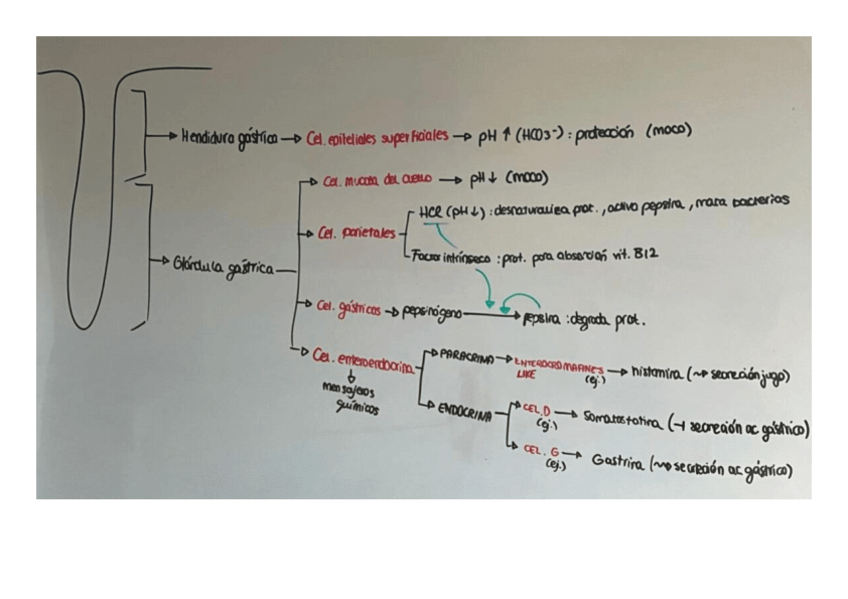 Hendidura gástrica → Cel. epiteliales superficiales → pH ↑ (HCO3-) : protección (moco)
Cel. mucosa del cuello → pH ↓ (moco)
HCl (pH ↓) : desnaturaliza prot. , activa pepsina , mata bacterias
Cel. parietales
Factor intrínseco : prot. para absorción vit. B12
Glándula gástrica
Cel. gástricos → pepsinógeno → pepsina : degrada prot.
Cel. enteroendocrina
mensajeros
químicos
PARACRINA → ENTEROCROMAFINES
LIKE
(ej.)
→ histamina (~→ secreción jugo)
ENDOCRINA
CEL. D → Somatostatina (⊣ secreción ac gástrico)
(ej.)
CEL. G → Gastrina (~→ secreción ac. gástrico)
(ej.)